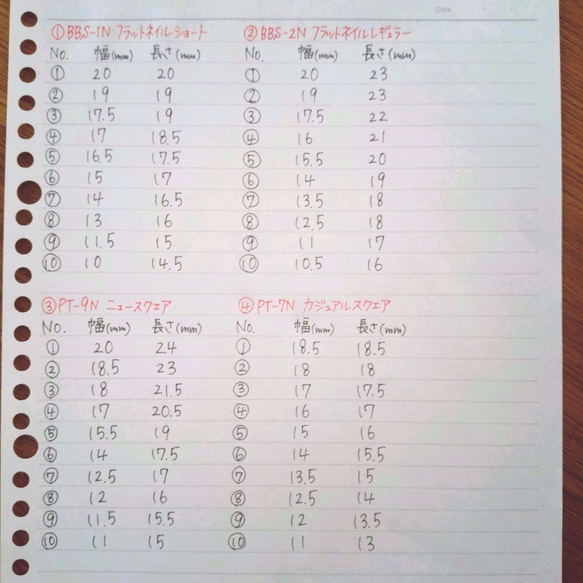 Date
①BBS-1N フラットネイルショート
No. 幅(mm) 長さ(mm)
① 20 20
② 19 19
③ 17.5 19
④ 17 18.5
⑤ 16.5 17.5
⑥ 15 17
⑦ 14 16.5
⑧ 13 16
⑨ 11.5 15
⑩ 10 14.5
②BBS-2N フラットネイルレギュラー
No. 幅(mm) 長さ(mm)
① 20 23
② 19 23
③ 17.5 22
④ 16 21
⑤ 15.5 20
⑥ 14 19
⑦ 13.5 18
⑧ 12.5 18
⑨ 11 17
⑩ 10.5 16
③PT-9N ニュースクエア
No. 幅(mm) 長さ(mm)
① 20 24
② 18.5 23
③ 18 21.5
④ 17 20.5
⑤ 15.5 19
⑥ 14 17.5
⑦ 12.5 17
⑧ 12 16
⑨ 11.5 15.5
⑩ 11 15
④PT-7N カジュアルスクエア
No. 幅(mm) 長さ(mm)
① 18.5 18.5
② 18 18
③ 17 17.5
④ 16 17
⑤ 15 16
⑥ 14 15.5
⑦ 13.5 15
⑧ 12.5 14
⑨ 12 13.5
⑩ 11 13